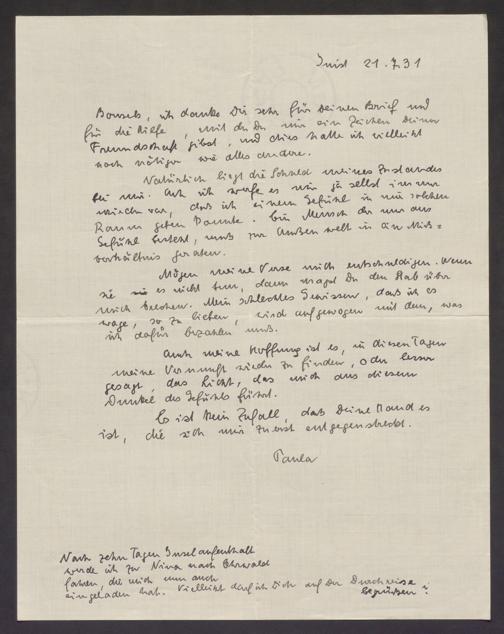 Juist 21.7.31
Bonsels, ich danke Dir sehr für Deinen Brief und
für die Hilfe, mit der Du mir ein Zeichen Deiner
Freundschaft gibst, und dies hatte ich vielleicht
noch nötiger wie alles andere.
Natürlich liegt die Schuld meines Zustandes
bei mir. Auch ich werfe es mir ja selbst immer
wieder vor, daß ich einem Gefühl in mir solchen
Raum geben konnte. Ein Mensch der nur aus
Gefühl besteht, muß zur Außenwelt in ein Miß=
verhältnis geraten.
Mögen meine Verse mich entschuldigen. Wenn
sie es nicht tun, dann magst Du den Stab über
mich brechen. Mein schlechtes Gewissen, daß ich es
wage, so zu lieben, wird aufgewogen mit dem, was
ich dafür bezahlen muß.
Auch meine Hoffnung ist es, in diesen Tagen
meine Vernunft wieder zu finden, oder besser
gesagt, das Licht, das mich aus diesem
Dunkel des Gefühls führt.
Es ist kein Zufall, daß Deine Hand es
ist, die sich mir zuerst entgegenstreckt.
Paula
Nach zehn Tagen Inselaufenthalt
werde ich zu Nina nach Ehrwald
fahren, die mich nun auch
eingeladen hat. Vielleicht darf ich Dich auf der Durchreise
begrüßen?